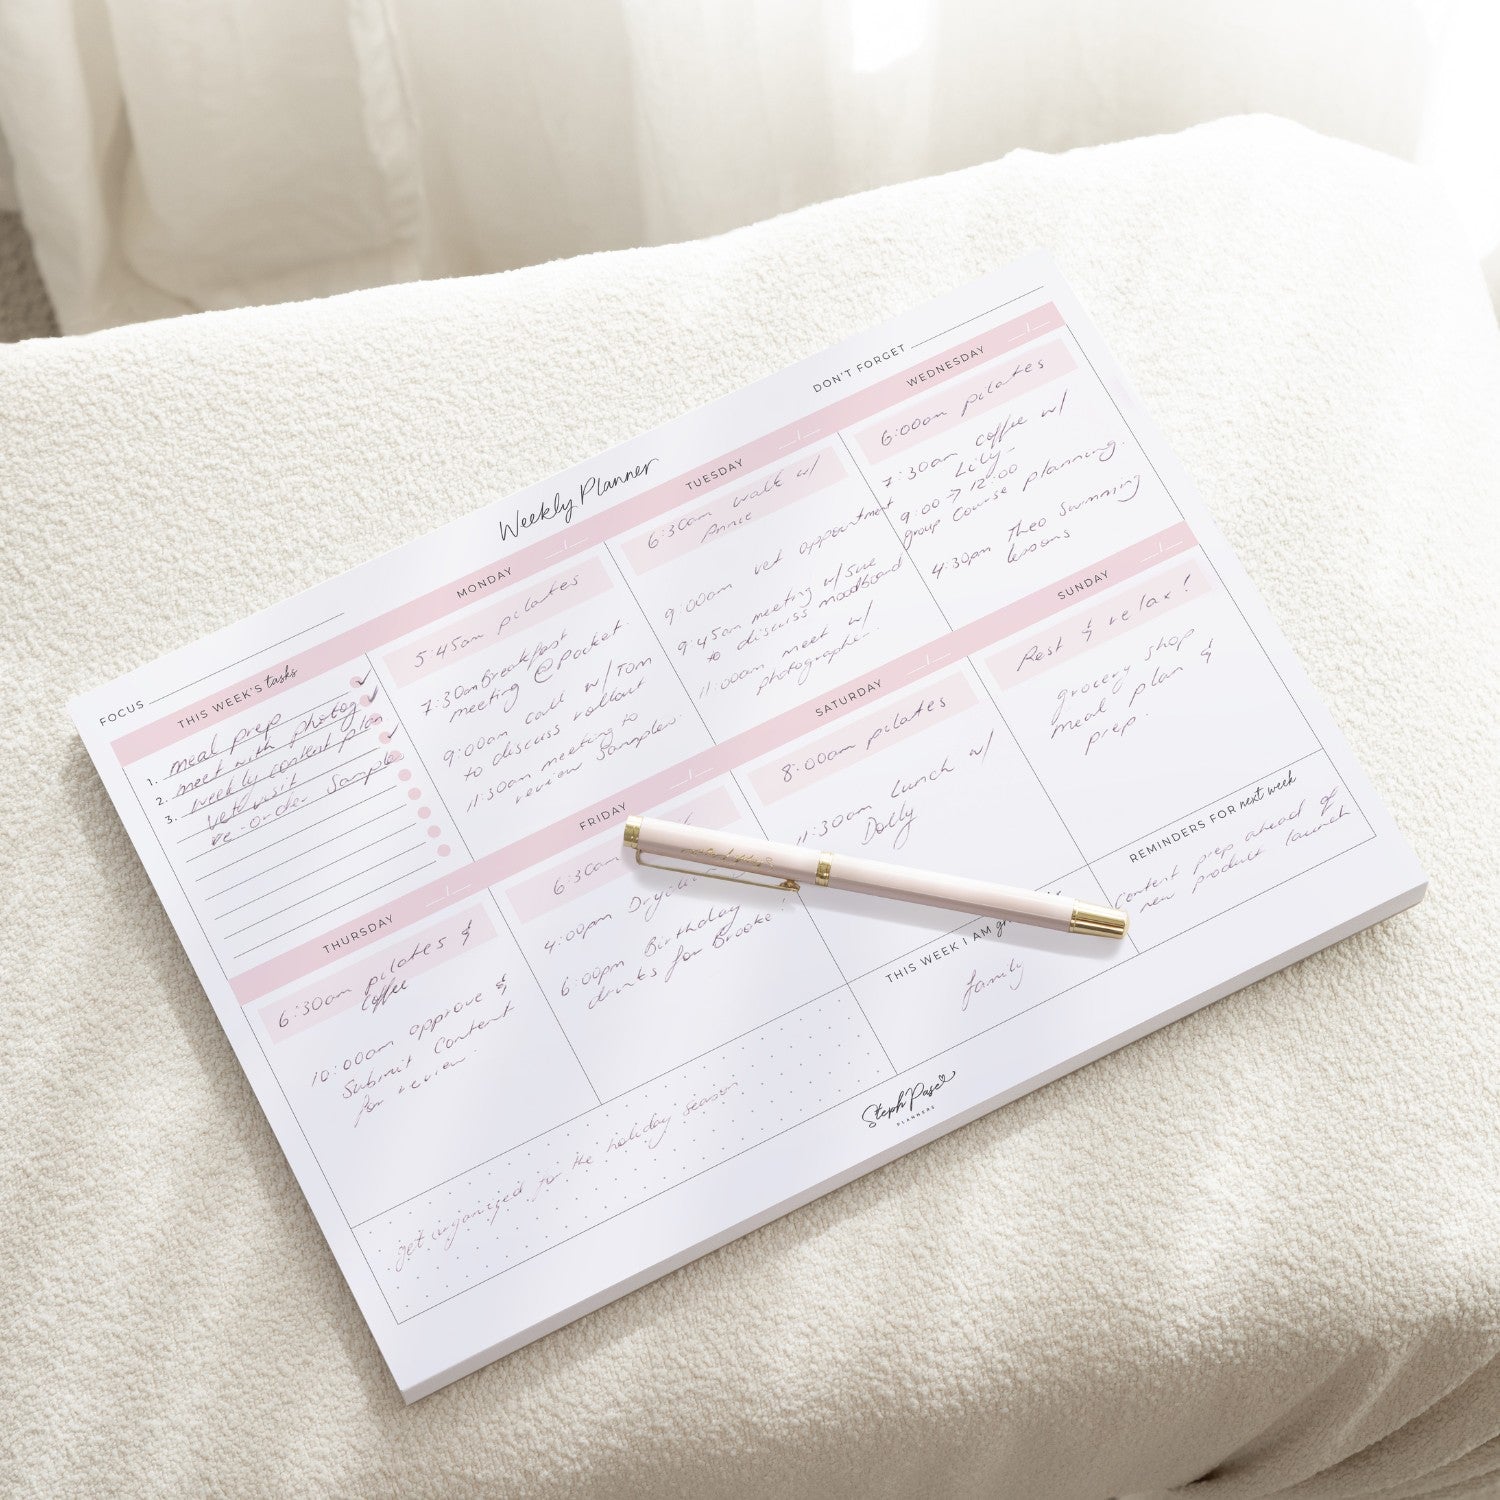 Weekly Planner
FOCUS
DON'T FORGET
THIS WEEK'S tasks
1. meal prep
2. meet with photog
3. weekly content plan
vet visit
re-order samples
MONDAY
5:45am pilates
7:30am Breakfast
meeting @ pocket.
9:00am call w/ Tom
to discuss rollout
11:30am meeting to
review samples.
TUESDAY
6:30am walk w/
Annie
9:00am vet appointment
9:45am meeting w/ Sue
to discuss moodboard
11:00am meet w/
photographer.
WEDNESDAY
6:00am pilates
7:30am coffee w/
Lily-
9:00 → 12:00
group course planning.
4:30pm Theo swimming
lessons
THURSDAY
6:30am pilates &
coffee
10:00am approve &
submit content
for review.
FRIDAY
6:30am
4:00pm
6:00pm Birthday
drinks for Brooke!
SATURDAY
8:00am pilates
11:30am Lunch w/
Dolly
SUNDAY
Rest & relax!
grocery shop
meal plan &
prep.
get organised for the holiday season
THIS WEEK I AM
family
REMINDERS FOR next week
content prep ahead of
new product launch
Steph Pase
PLANNERS